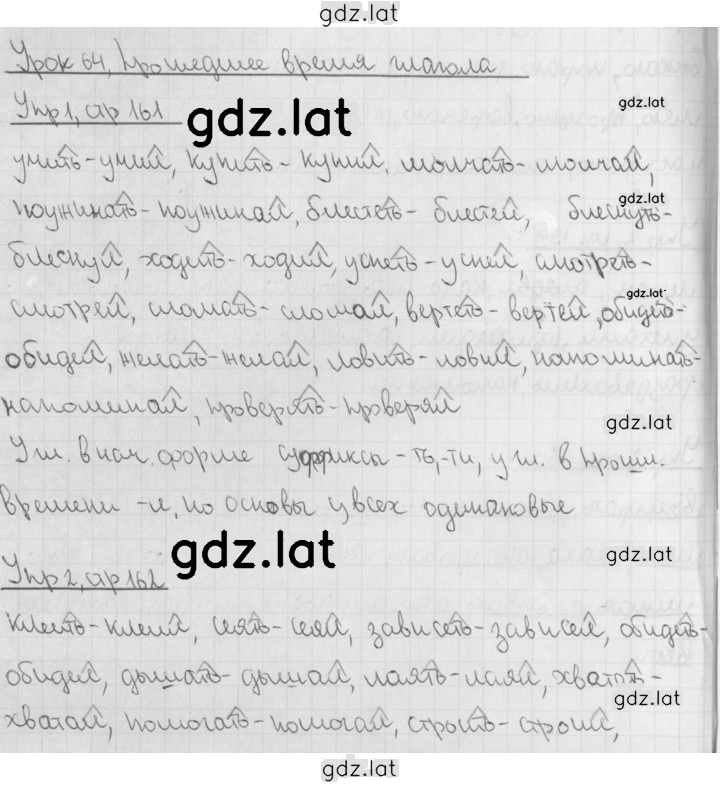 gdz.lat
Урок 64, Прошедшее время глагола
gdz.lat
Упр 1, стр 161
gdz.lat
уметь-умел, купить-купил, молчать-молчал,
gdz.lat
поужинать-поужинал, блестеть-блестел, блеснуть-
блеснул, ходить-ходил, успеть-успел, смотреть-
gdz.lat
смотрел, сломать-сломал, вертеть-вертел, обидеть-
обидел, желать-желал, ловить-ловил, напоминать-
напоминал, проверять-проверял
gdz.lat
У гл. в нач. форме суффиксы -ть,-ти, у гл. в прош.
времени -л, но основы у всех одинаковые
gdz.lat
gdz.lat
Упр 2, стр 162
клеить-клеил, сеять-сеял, зависеть-зависел, обидеть-
обидел, дышать-дышал, лаять-лаял, хватать-
gdz.lat
хватал, помогать-помогал, строить-строил,
gdz.lat